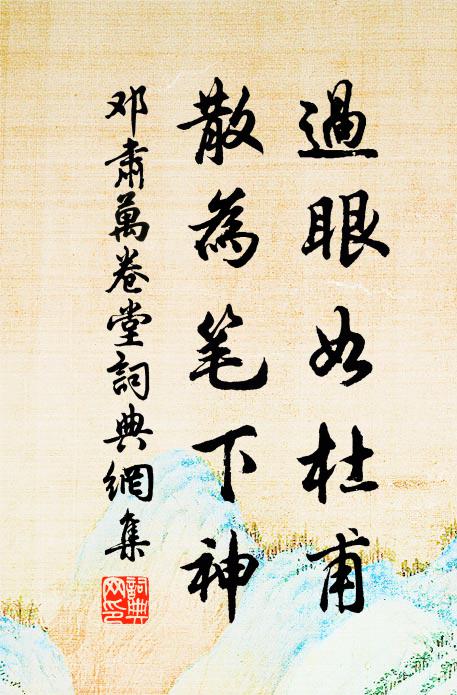 過眼如杜甫
散為笔下神
邓肅萬卷堂詞典網集
詞典网印